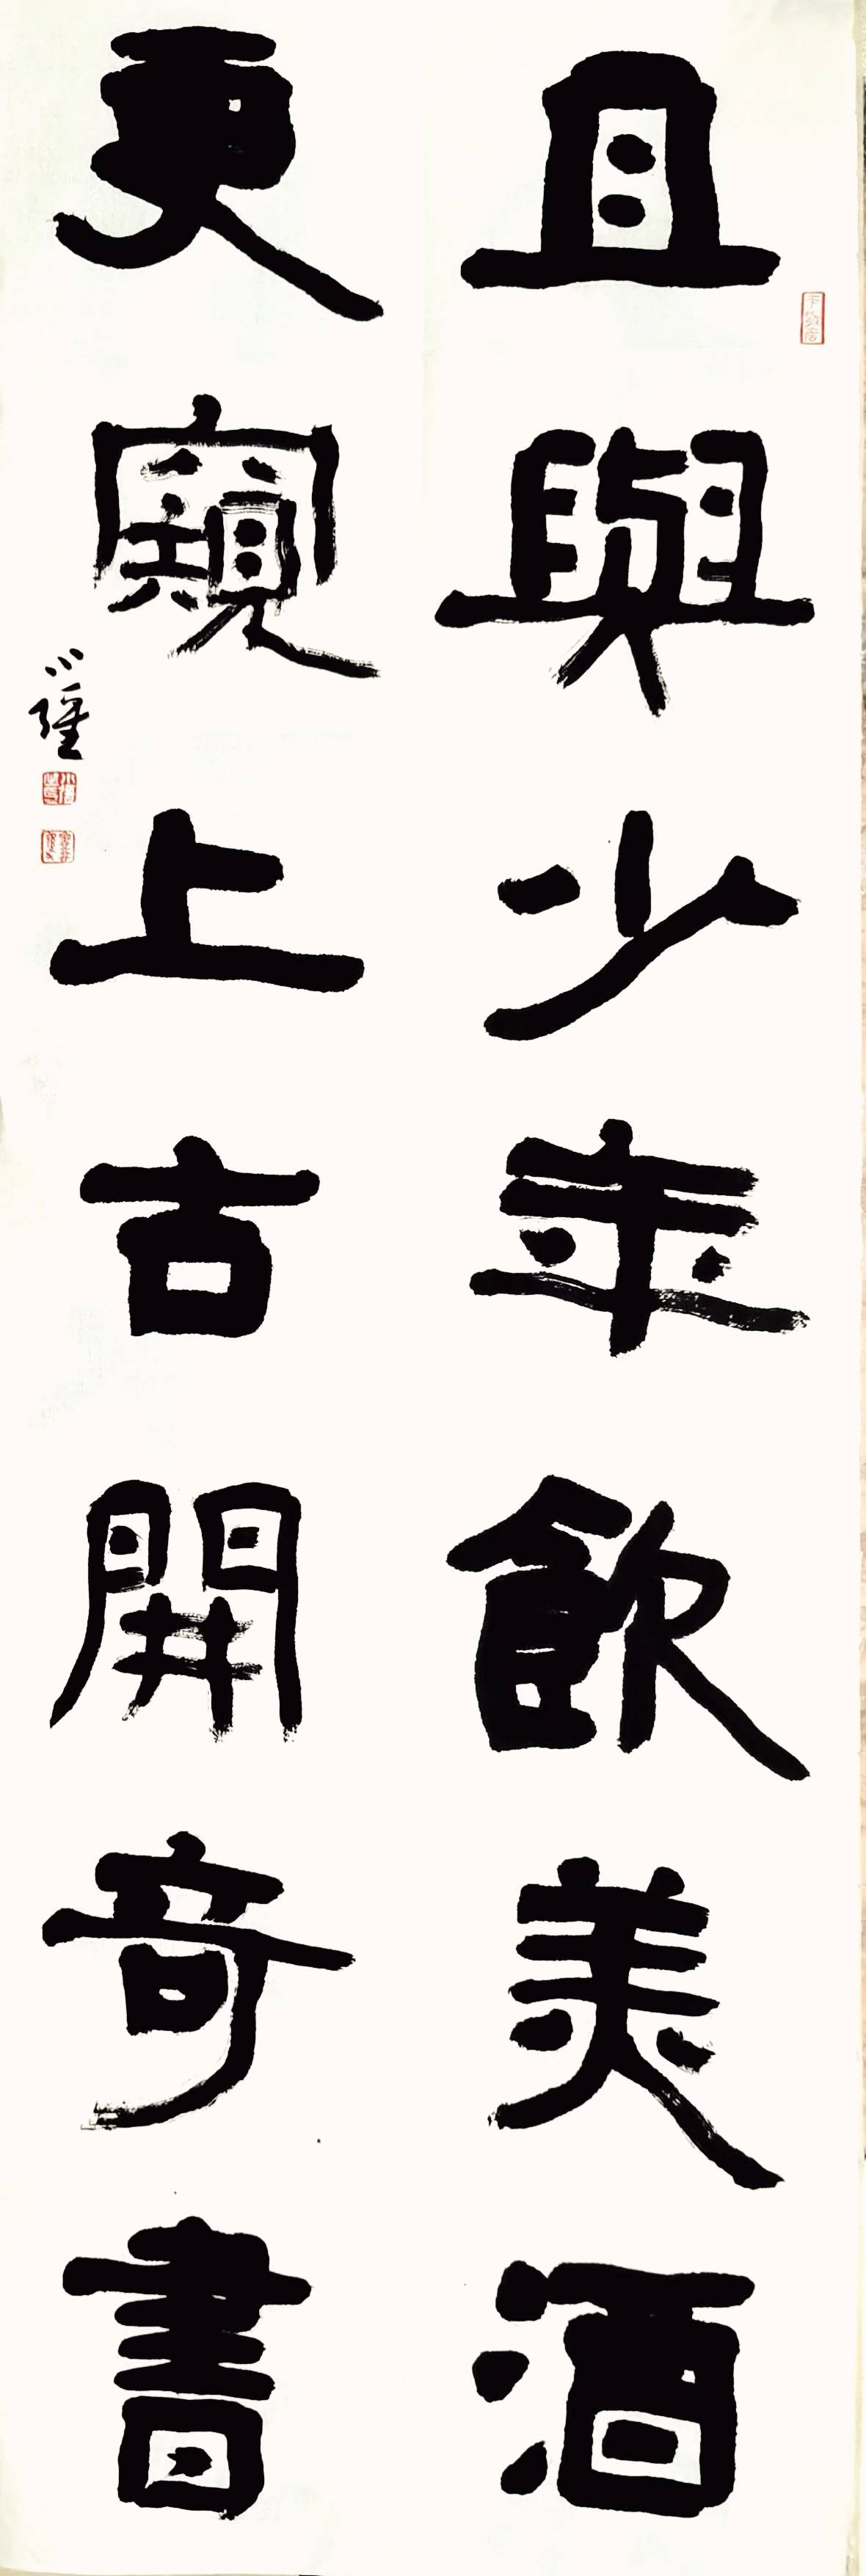 且與少年飲美酒
更窺上古開奇書